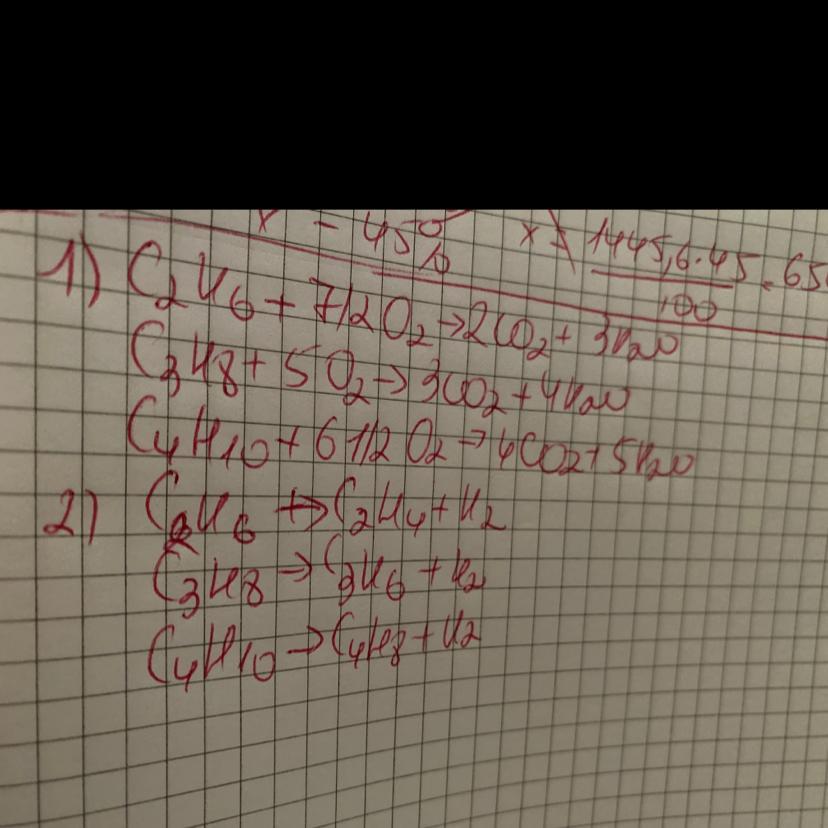 x - 45% x = 1445,6·45 / 100 = 65
1) C2H6 + 7/2O2 → 2CO2 + 3H2O
C3H8 + 5O2 → 3CO2 + 4H2O
C4H10 + 6 1/2 O2 → 4CO2 + 5H2O
2) C2H6 → C2H4 + H2
C3H8 → C3H6 + H2
C4H10 → C4H8 + H2